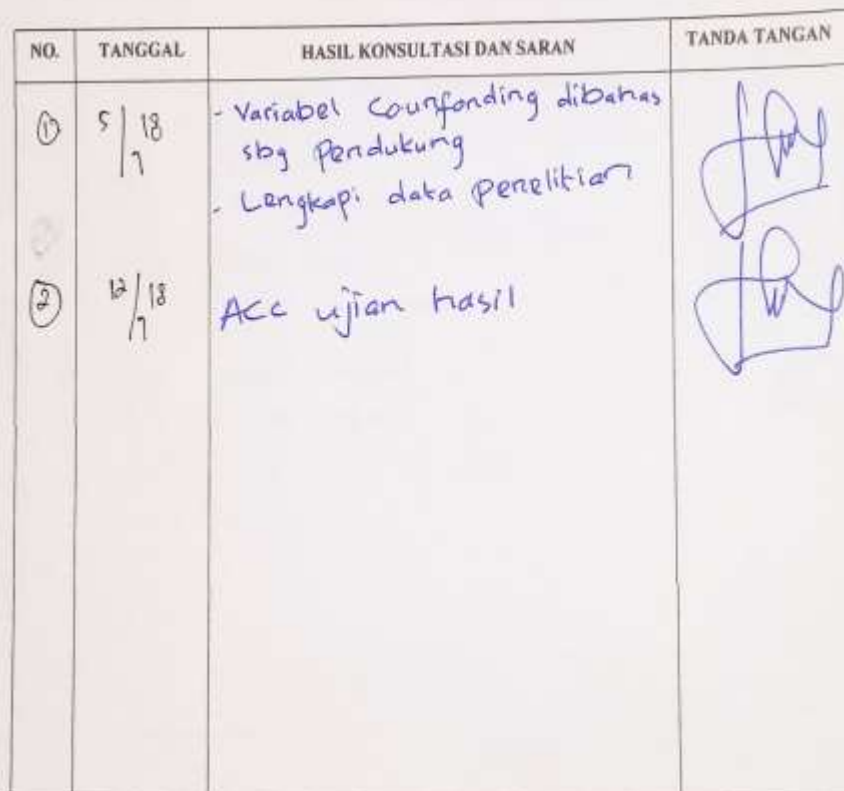 NO. TANGGAL HASIL KONSULTASI DAN SARAN TANDA TANGAN
① 5/7 18 - Variabel Counfonding dibahas
sbg Pendukung
- Lengkapi data penelitian
② 12/7 18 Acc ujian hasil